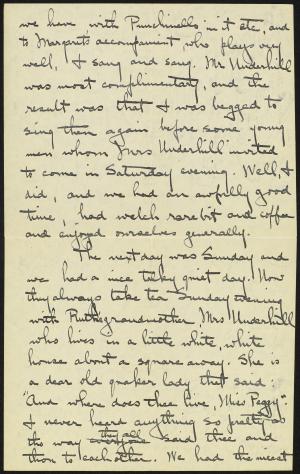 we have with Punchinello in it etc, and
to Margaret's accompaniment, who plays very
well, I sang and sang. Mr Underhill
was most complimentary, and the
result was that I was begged to
sing them again before some young
men whom Mrs Underhill invited
to come in Saturday evening. Well, I
did, and we had an awfully good
time, had welch rarebit and coffee
and enjoyed ourselves generally.
The next day was Sunday and
we had a nice talky quiet day. Now
they always take tea Sunday evening
with Ruth's grandmother Mrs Underhill
who lives in a little white, white
house about a square away. She is
a dear old quaker lady that said:
"And where does thee live, Miss Peggy".
I never heard anything so pretty as
the way they all said thee and
thou to each other. We had the nicest